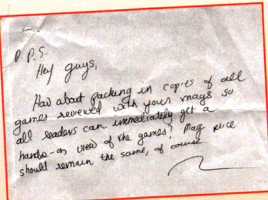 P.P.S.
Hey guys,
How about packing in copies of all
games reviewed with your mags so
all readers can immediately get a
hands-on view of the games? Mag price
should remain the same, of course